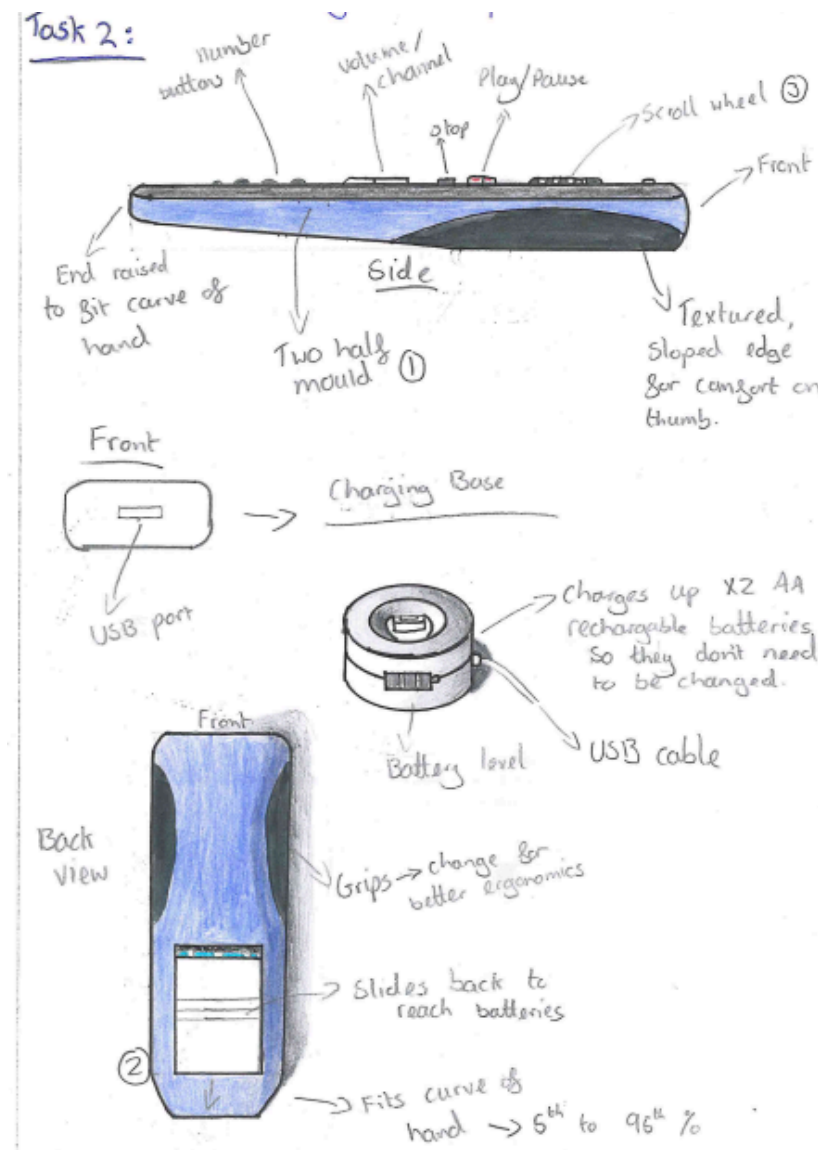 Task 2:
number
buttons
volume/
channel
Stop
Play/Pause
Scroll wheel ③
Front
End raised
to fit curve of
hand
Side
Two half
mould ①
Textured,
Sloped edge
for comfort on
thumb.
Front
Charging Base
USB port
Charges up X2 AA
rechargable batteries
so they don't need
to be changed.
Battery level
USB cable
Front
Back
view
Grips → change for
better ergonomics
Slides back to
reach batteries
②
Fits curve of
hand → 5th to 95th %